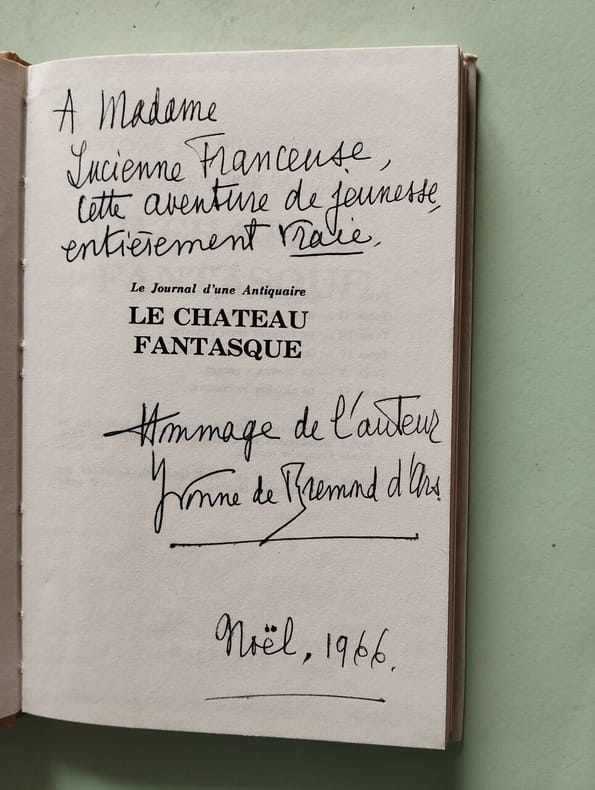 A Madame
Lucienne Franceuse,
cette aventure de jeunesse,
entièrement vraie.
Le Journal d'une Antiquaire
LE CHATEAU
FANTASQUE
Hommage de l'auteur
Yvonne de Bremond d'Ars
Noël, 1966.